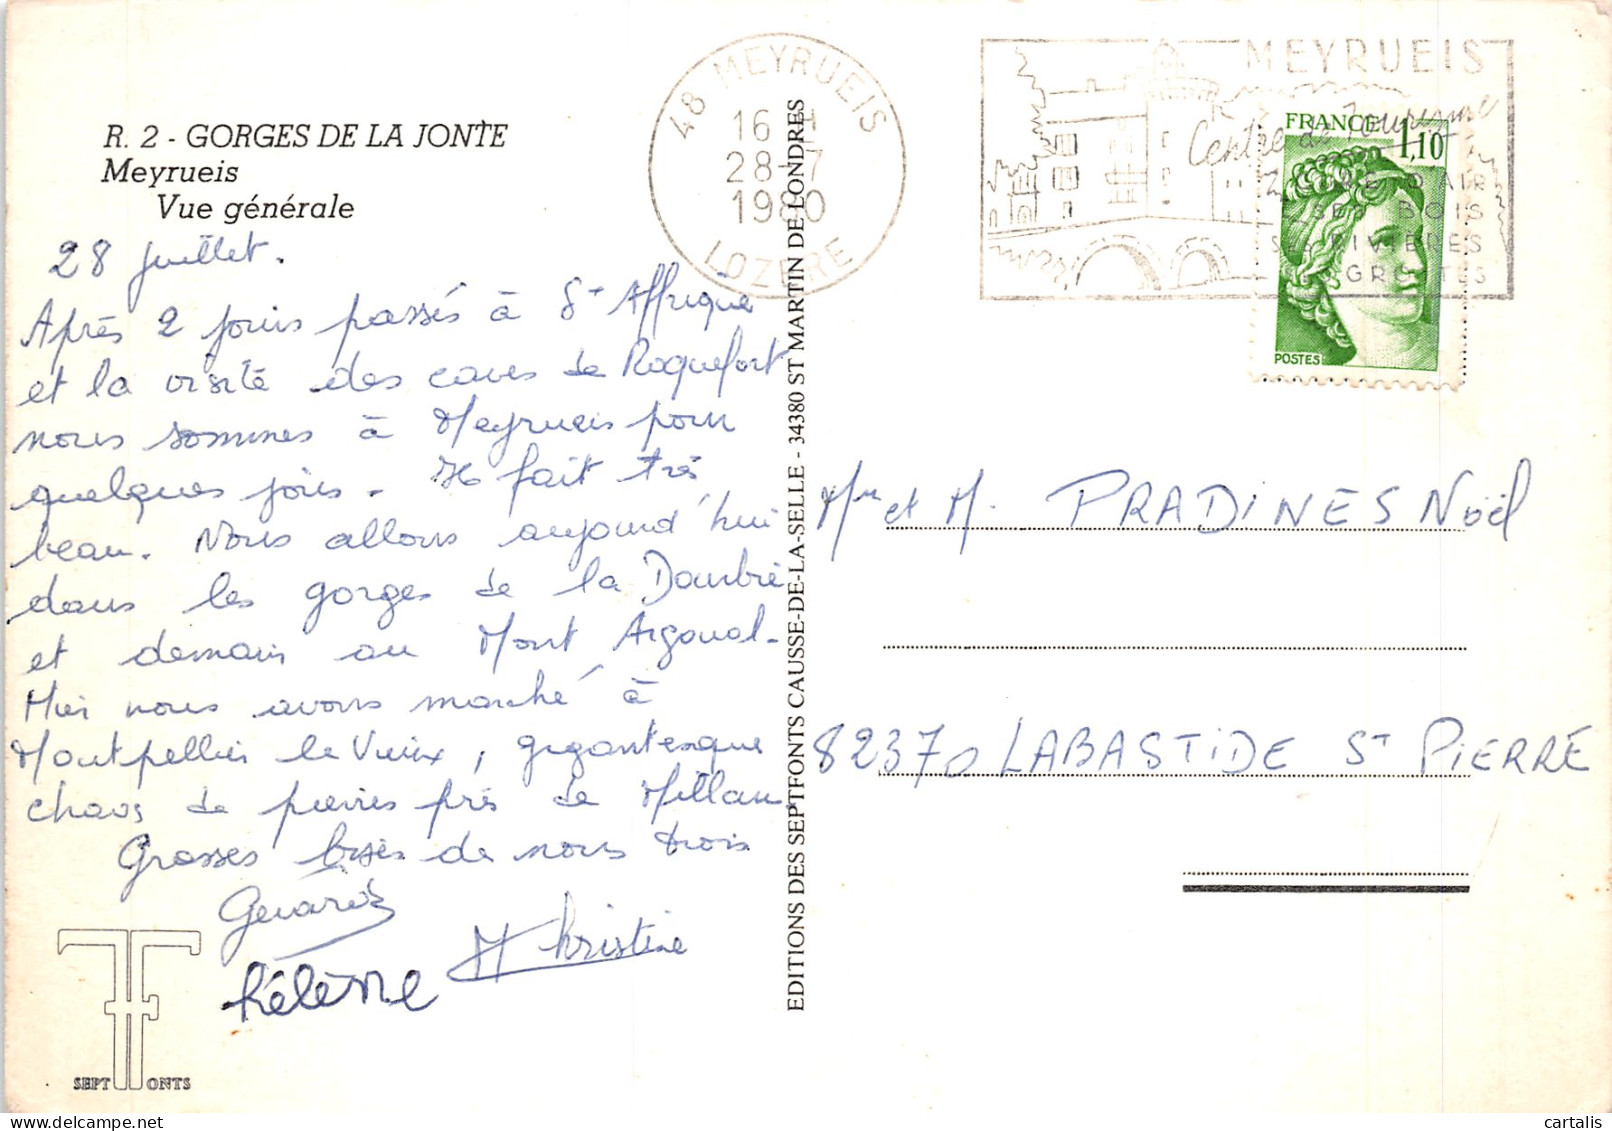 R. 2 - GORGES DE LA JONTE
Meyrueis
Vue générale
28 juillet.
Après 2 jours passés à St Affrique
et la visite des caves de Roquefort
nous sommes à Meyrueis pour
quelques jours. Il fait très
beau. Nous allons aujourd'hui
dans les gorges de la Dourbie
et demain au Mont Aigoual.
Hier nous avons marché à
Montpellier le Vieux, gigantesque
chaos de pierres près de Millau
Grosses bises de nous trois
Gérard
Hélène
M Christine
SEPT FONTS
EDITIONS DES SEPTFONTS CAUSSE-DE-LA-SELLE - 34380 ST MARTIN DE LONDRES
48 MEYRUEIS
16 H
28-7
1980
LOZERE
MEYRUEIS
Centre de Tourisme
AIR
SES BOIS
SES RIVIERES
GROTTES
FRANCE
1,10
POSTES
Mme et M. PRADINES Noël
82370 LABASTIDE ST PIERRE
cartalis